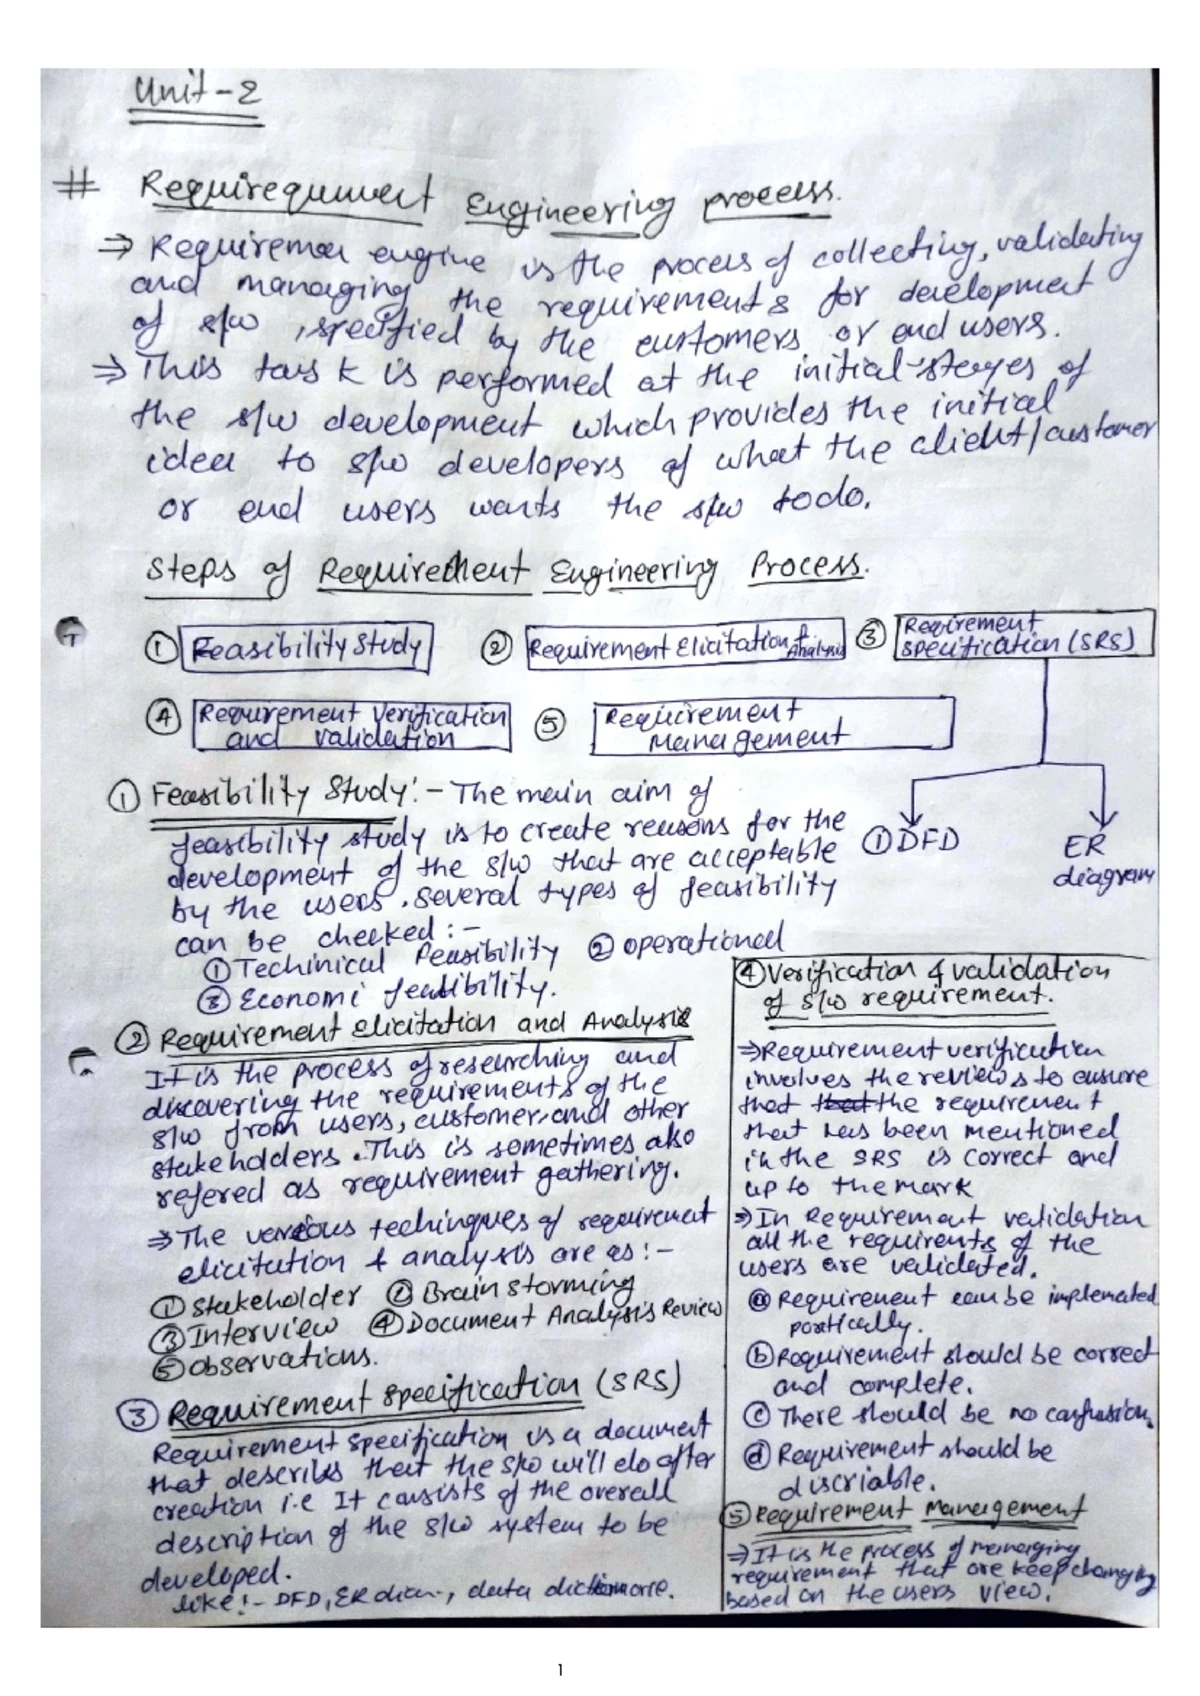 Unit-2
# Requirequement Engineering process.
⇒ Requiremen engine is the process of collecting, validating
and managing the requirements for development
of s/w, specified by the customers or end users.
⇒ This task is performed at the initial stages of
the s/w development which provides the initial
idea to s/w developers of what the client/customer
or end users wants the s/w todo.
Steps of Requirement Engineering Process.
① Feasibility Study ② Requirement Elicitation & Analysis ③ Requirement
specification (SRS)
④ Requirement Verification
and validation
⑤ Requirement
Management
① DFD
ER
diagram
① Feasibility Study:- The main aim of
feasibility study is to create reasons for the
development of the s/w that are acceptable
by the users. several types of feasibility
can be checked :-
① Techinical Feasibility ② operational
③ Economi feasibility.
② Requirement elicitation and Analysis
It is the process of researching and
discovering the requirements of the
s/w from users, customer, and other
stakeholders. This is sometimes also
refered as requirement gathering.
⇒ The various techinques of requirement
elicitation & analysis are as :-
① Stakeholder ② Brain storming
③ Interview ④ Document Analysis Review
⑤ observations.
③ Requirement specification (SRS)
Requirement specification is a document
that describes that the s/w will do after
creation i.e It consists of the overall
description of the s/w system to be
developed.
like:- DFD, ER diam., data
④ Verification & validation
of s/w requirement.
⇒ Requirement verification
involves the reviews to ensure
that that the requirement
that has been mentioned
in the SRS is correct and
up to the mark
⇒ In Requirement validation
all the requirents of the
users are validated.
ⓐ Requirement can be implemated
partically.
ⓑ Requirement should be correct
and complete.
ⓒ There should be no confusion.
ⓓ Requirement should be
discriable.
⑤ Requirement Management
⇒ It is the process of managing
requirement that are keep changing
based on the users view.
1